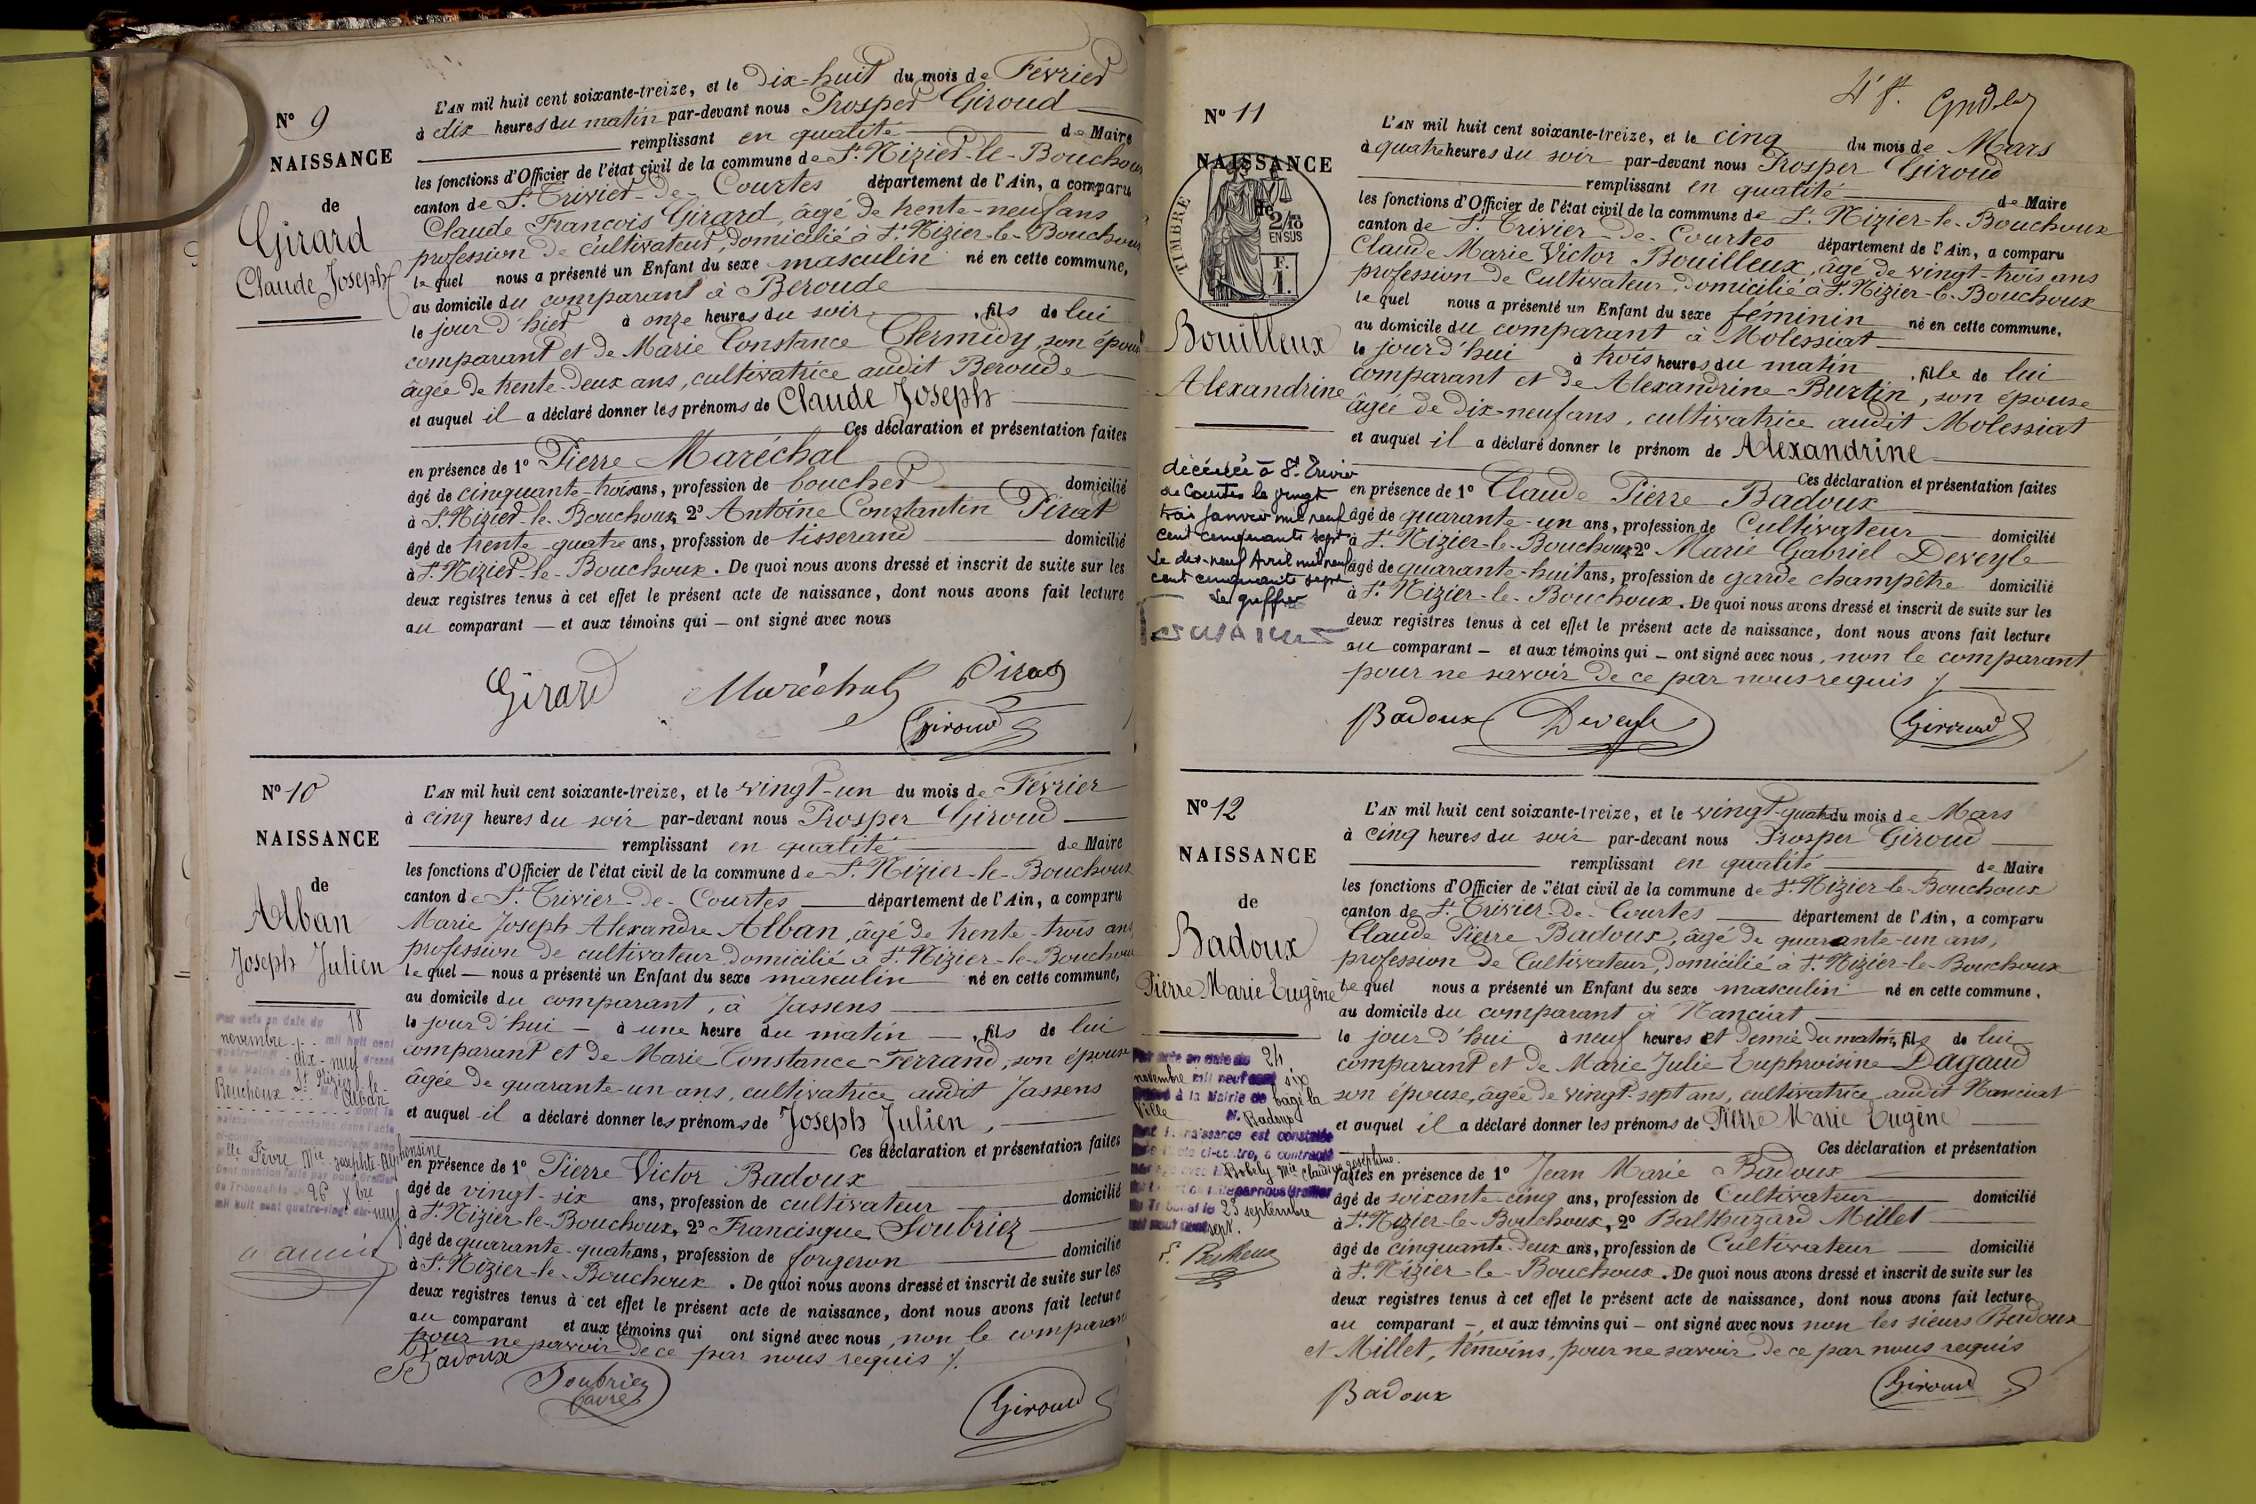 N° 9
NAISSANCE
de
Girard
Claude Joseph
L'AN mil huit cent soixante-treize, et le dix-huit du mois de Février
à dix heures du matin par-devant nous Prosper Giroud
remplissant en qualité de Maire
les fonctions d'Officier de l'état civil de la commune de St Nizier-le-Bouchoux
canton de St Trivier-de-Courtes département de l'Ain, a comparu
Claude François Girard, âgé de trente-neuf ans
profession de cultivateur, domicilié à St Nizier-le-Bouchoux
lequel nous a présenté un Enfant du sexe masculin né en cette commune,
au domicile du comparant à Beroude
le jour d'hier à onze heures du soir, fils de lui
comparant et de Marie Constance Clermidy, son épouse
âgée de trente-deux ans, cultivatrice audit Beroude
et auquel il a déclaré donner les prénoms de Claude Joseph
Ces déclaration et présentation faites
en présence de 1° Pierre Maréchal
âgé de cinquante-trois ans, profession de boucher domicilié
à St Nizier-le-Bouchoux, 2° Antoine Constantin Pirat
âgé de trente-quatre ans, profession de tisserand domicilié
à St Nizier-le-Bouchoux. De quoi nous avons dressé et inscrit de suite sur les
deux registres tenus à cet effet le présent acte de naissance, dont nous avons fait lecture
au comparant — et aux témoins qui — ont signé avec nous
Girard Maréchal Pirat
Giroud
N° 10
NAISSANCE
de
Alban
Joseph Julien
Par acte en date du 18
novembre mil huit cent
quatre-vingt-dix-neuf dressé
à la Mairie de St Nizier-le-
Bouchoux M. Alban
dont la
naissance est constatée dans l'acte
ci-contre, a contracté mariage avec
Mlle Pivre Mie Josephte-Alphonsine
Dont mention faite par nous Greffier
du Tribunal le 26 Xbre
mil huit cent quatre-vingt dix-neuf
L'AN mil huit cent soixante-treize, et le vingt-un du mois de Février
à cinq heures du soir par-devant nous Prosper Giroud
remplissant en qualité de Maire
les fonctions d'Officier de l'état civil de la commune de St Nizier-le-Bouchoux
canton de St Trivier-de-Courtes département de l'Ain, a comparu
Marie Joseph Alexandre Alban, âgé de trente-trois ans
profession de cultivateur domicilié à St Nizier-le-Bouchoux
lequel — nous a présenté un Enfant du sexe masculin né en cette commune,
au domicile du comparant, à Jassens
le jour d'hui — à une heure du matin —, fils de lui
comparant et de Marie Constance Ferrand, son épouse
âgée de quarante-un ans, cultivatrice audit Jassens
et auquel il a déclaré donner les prénoms de Joseph Julien,
Ces déclaration et présentation faites
en présence de 1° Pierre Victor Badoux
âgé de vingt-six ans, profession de cultivateur domicilié
à St Nizier-le-Bouchoux, 2° Francisque Soubriez
âgé de quarante-quatre ans, profession de forgeron domicilié
à St Nizier-le-Bouchoux. De quoi nous avons dressé et inscrit de suite sur les
deux registres tenus à cet effet le présent acte de naissance, dont nous avons fait lecture
au comparant et aux témoins qui ont signé avec nous, non le comparant
pour ne savoir de ce par nous requis /.
Badoux Soubriez
Giroud
4e f.
N° 11
NAISSANCE
de
TIMBRE
2/10
EN SUS
F.
1.
Bouilleux
Alexandrine
décédée à St Trivier
de Courtes le vingt
trois Janvier mil neuf
cent cinquante sept
Le dix-neuf Avril mil neuf
cent cinquante sept
Le greffier
L'AN mil huit cent soixante-treize, et le cinq du mois de Mars
à quatre heures du soir par-devant nous Prosper Giroud
remplissant en qualité de Maire
les fonctions d'Officier de l'état civil de la commune de St Nizier-le-Bouchoux
canton de St Trivier-de-Courtes département de l'Ain, a comparu
Claude Marie Victor Bouilleux, âgé de vingt-trois ans
profession de Cultivateur, domicilié à St Nizier-le-Bouchoux
lequel nous a présenté un Enfant du sexe féminin né en cette commune.
au domicile du comparant à Molessiat
le jour d'hui à trois heures du matin, fille de lui
comparant et de Alexandrine Burtin, son épouse
âgée de dix-neuf ans, cultivatrice audit Molessiat
et auquel il a déclaré donner le prénom de Alexandrine
Ces déclaration et présentation faites
en présence de 1° Claude Pierre Badoux
âgé de quarante-un ans, profession de Cultivateur domicilié
à St Nizier-le-Bouchoux, 2° Marie Gabriel Deveyle
âgé de quarante-huit ans, profession de garde champêtre domicilié
à St Nizier-le-Bouchoux. De quoi nous avons dressé et inscrit de suite sur les
deux registres tenus à cet effet le présent acte de naissance, dont nous avons fait lecture
au comparant — et aux témoins qui — ont signé avec nous, non le comparant
pour ne savoir de ce par nous requis /.
Badoux Deveyle Giroud
N° 12
NAISSANCE
de
Badoux
Pierre Marie Eugène
Par acte en date du 24
novembre mil neuf cent six
dressé à la Mairie de bagé la
Ville M. Badoux
dont la naissance est constatée
dans l'acte ci-contre, a contracté
mariage avec Mlle Bobely Mie Claudine Joséphine.
Dont mention faite par nous Greffier
du Tribunal le 23 septembre
mil neuf cent sept.
L'AN mil huit cent soixante-treize, et le vingt-quatre du mois de Mars
à cinq heures du soir par-devant nous Prosper Giroud
remplissant en qualité de Maire
les fonctions d'Officier de l'état civil de la commune de St Nizier-le-Bouchoux
canton de St Trivier-de-Courtes département de l'Ain, a comparu
Claude Pierre Badoux, âgé de quarante-un ans,
profession de Cultivateur, domicilié à St Nizier-le-Bouchoux
lequel nous a présenté un Enfant du sexe masculin né en cette commune,
au domicile du comparant à Nanciat
le jour d'hui à neuf heures et demie du matin, fils de lui
comparant et de Marie Julie Euphroisine Dagaud
son épouse, âgée de vingt-sept ans, cultivatrice audit Nanciat
et auquel il a déclaré donner les prénoms de Pierre Marie Eugène
Ces déclaration et présentation
faites en présence de 1° Jean Marie Badoux
âgé de soixante-cinq ans, profession de Cultivateur domicilié
à St Nizier-le-Bouchoux, 2° Balthazard Millet
âgé de cinquante-deux ans, profession de Cultivateur domicilié
à St Nizier-le-Bouchoux. De quoi nous avons dressé et inscrit de suite sur les
deux registres tenus à cet effet le présent acte de naissance, dont nous avons fait lecture
au comparant —, et aux témoins qui — ont signé avec nous non les sieurs Badoux
et Millet, témoins, pour ne savoir de ce par nous requis
Badoux Giroud